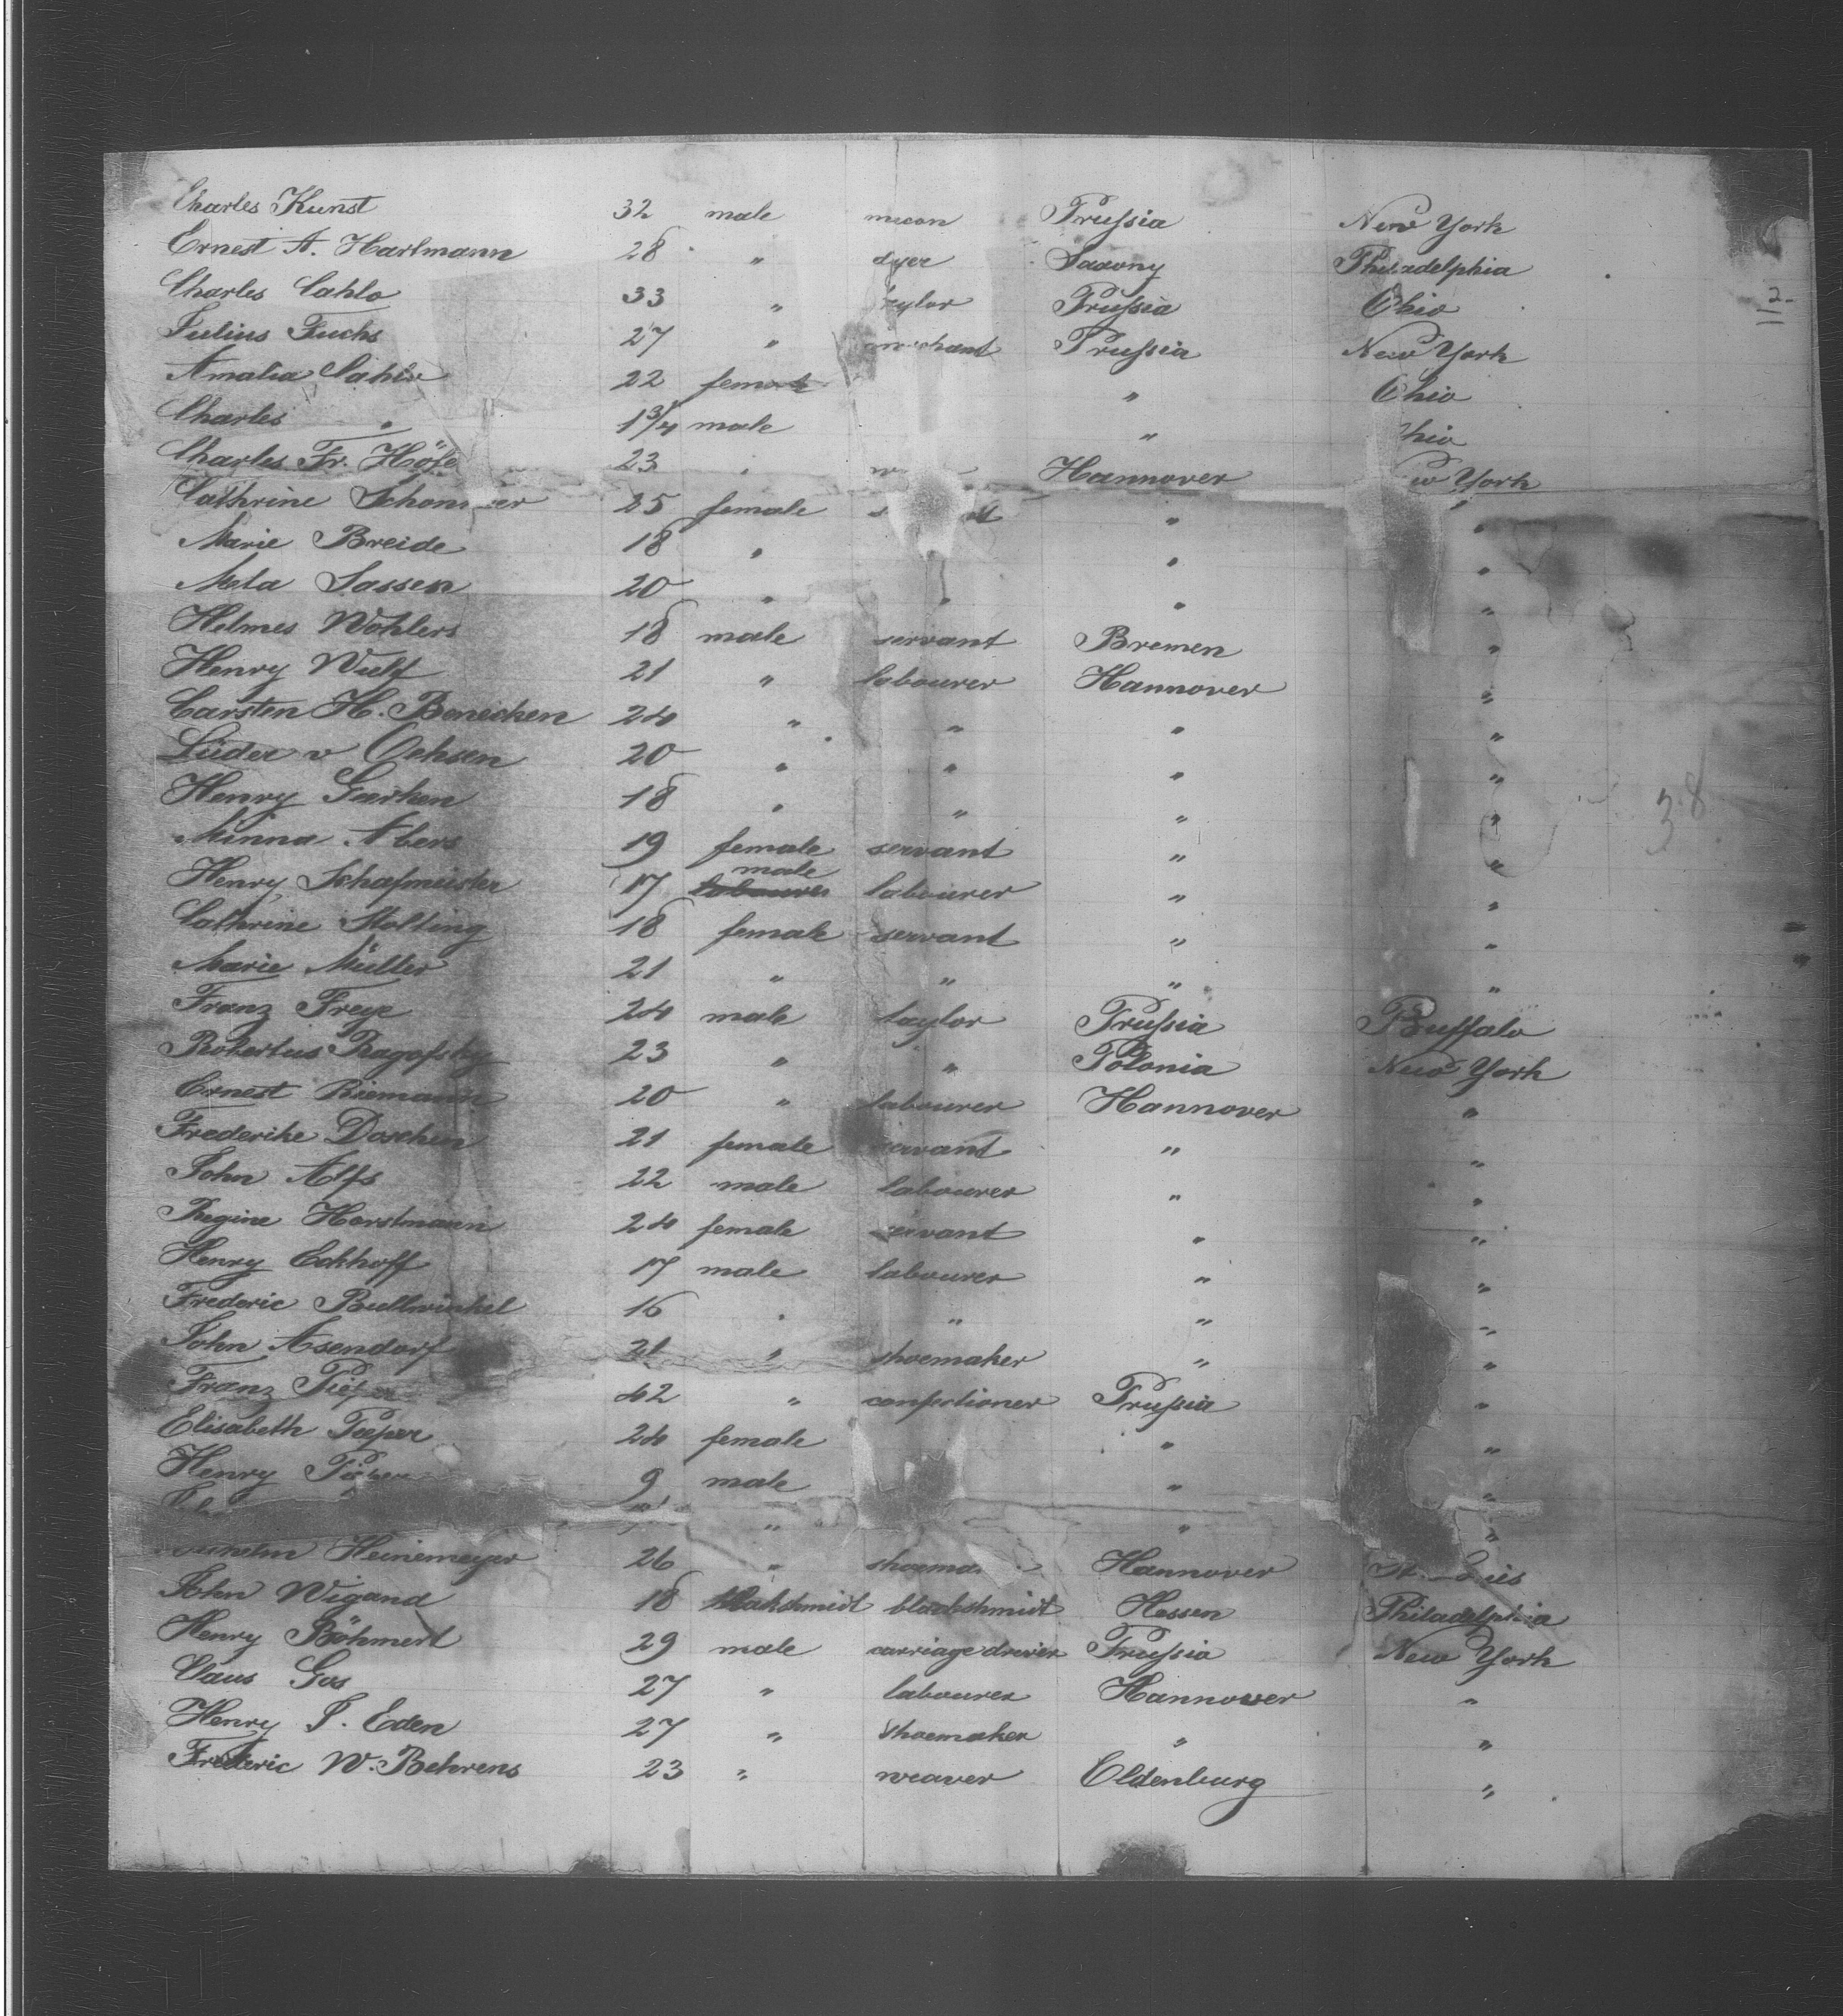 Charles Kunst 32 male mason Prussia New York
Ernest A. Hartmann 28 " dyer Saxony Philadelphia
Charles Cahlo 33 " taylor Prussia Ohio
2
Julius Fuchs 27 " merchant Prussia New York
Amalia Cahlo 22 female " Ohio
Charles " 1 3/4 male " Ohio
Charles Fr. Höfe 23 " Hannover New York
Cathrine 25 female " "
Marie Breide 18 " " "
Meta Sassen 20 " " " "
Helmes Wohlers 18 male servant Bremen "
Henry Wulf 21 " labourer Hannover "
Carsten H. Benecken 24 " " " "
Lüder v Oehsen 20 " " " "
Henry Gerken 18 " " " "
38
Minna Albers 19 female servant " "
Henry Schafmeister 17 male labourer " "
Cathrine Stolting 18 female servant " "
Marie Müller 21 " " " "
Franz Freye 24 male taylor Prussia Buffalo
Robertus Ragofsky 23 " " Polonia New York
Ernest Riemann 20 " labourer Hannover "
Frederike Doschen 21 female servant " "
John Alfs 22 male labourer " "
Regine Horstmann 24 female servant " "
Henry Eckhoff 17 male labourer " "
Frederic Bullwinkel 16 " " " "
John Asendorf 21 " shoemaker " "
Franz Pieper 42 " confectioner Prussia "
Elisabeth Pieper 24 female " "
Henry Pieper 9 male " "
" " "
Heinemeyer 26 " Hannover St. Louis
John Wigand 18 blackshmidt Hessen Philadelphia
Henry Böhmert 29 male carriage driver Prussia New York
Claus Gos 27 " labourer Hannover "
Henry J. Eden 27 " shoemaker " "
Frederic W. Behrens 23 " weaver Oldenburg "